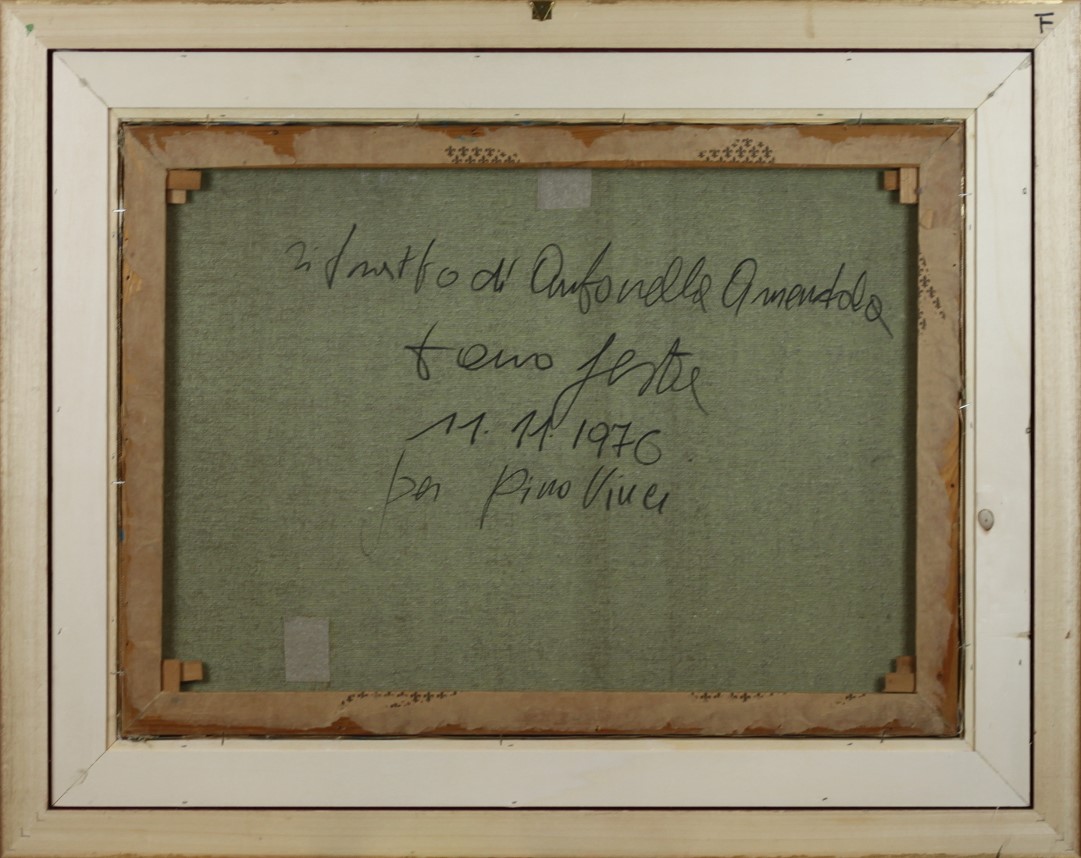 F
ritratto di Antonella Amendola
tano festa
11.11.1976
per Pino Vinci